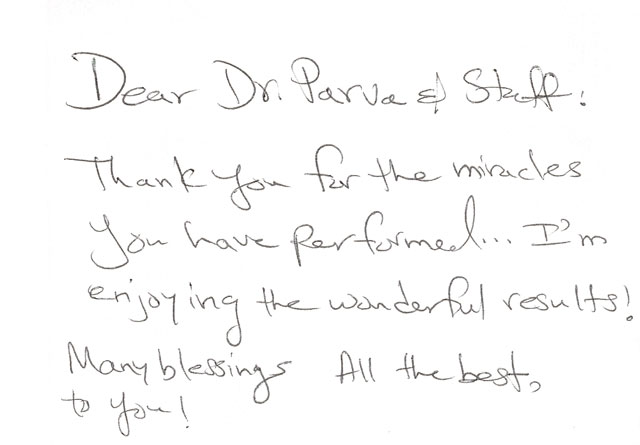 Dear Dr. Parva & Staff:
Thank you for the miracles
you have performed... I'm
enjoying the wonderful results!
Many blessings All the best,
to you!